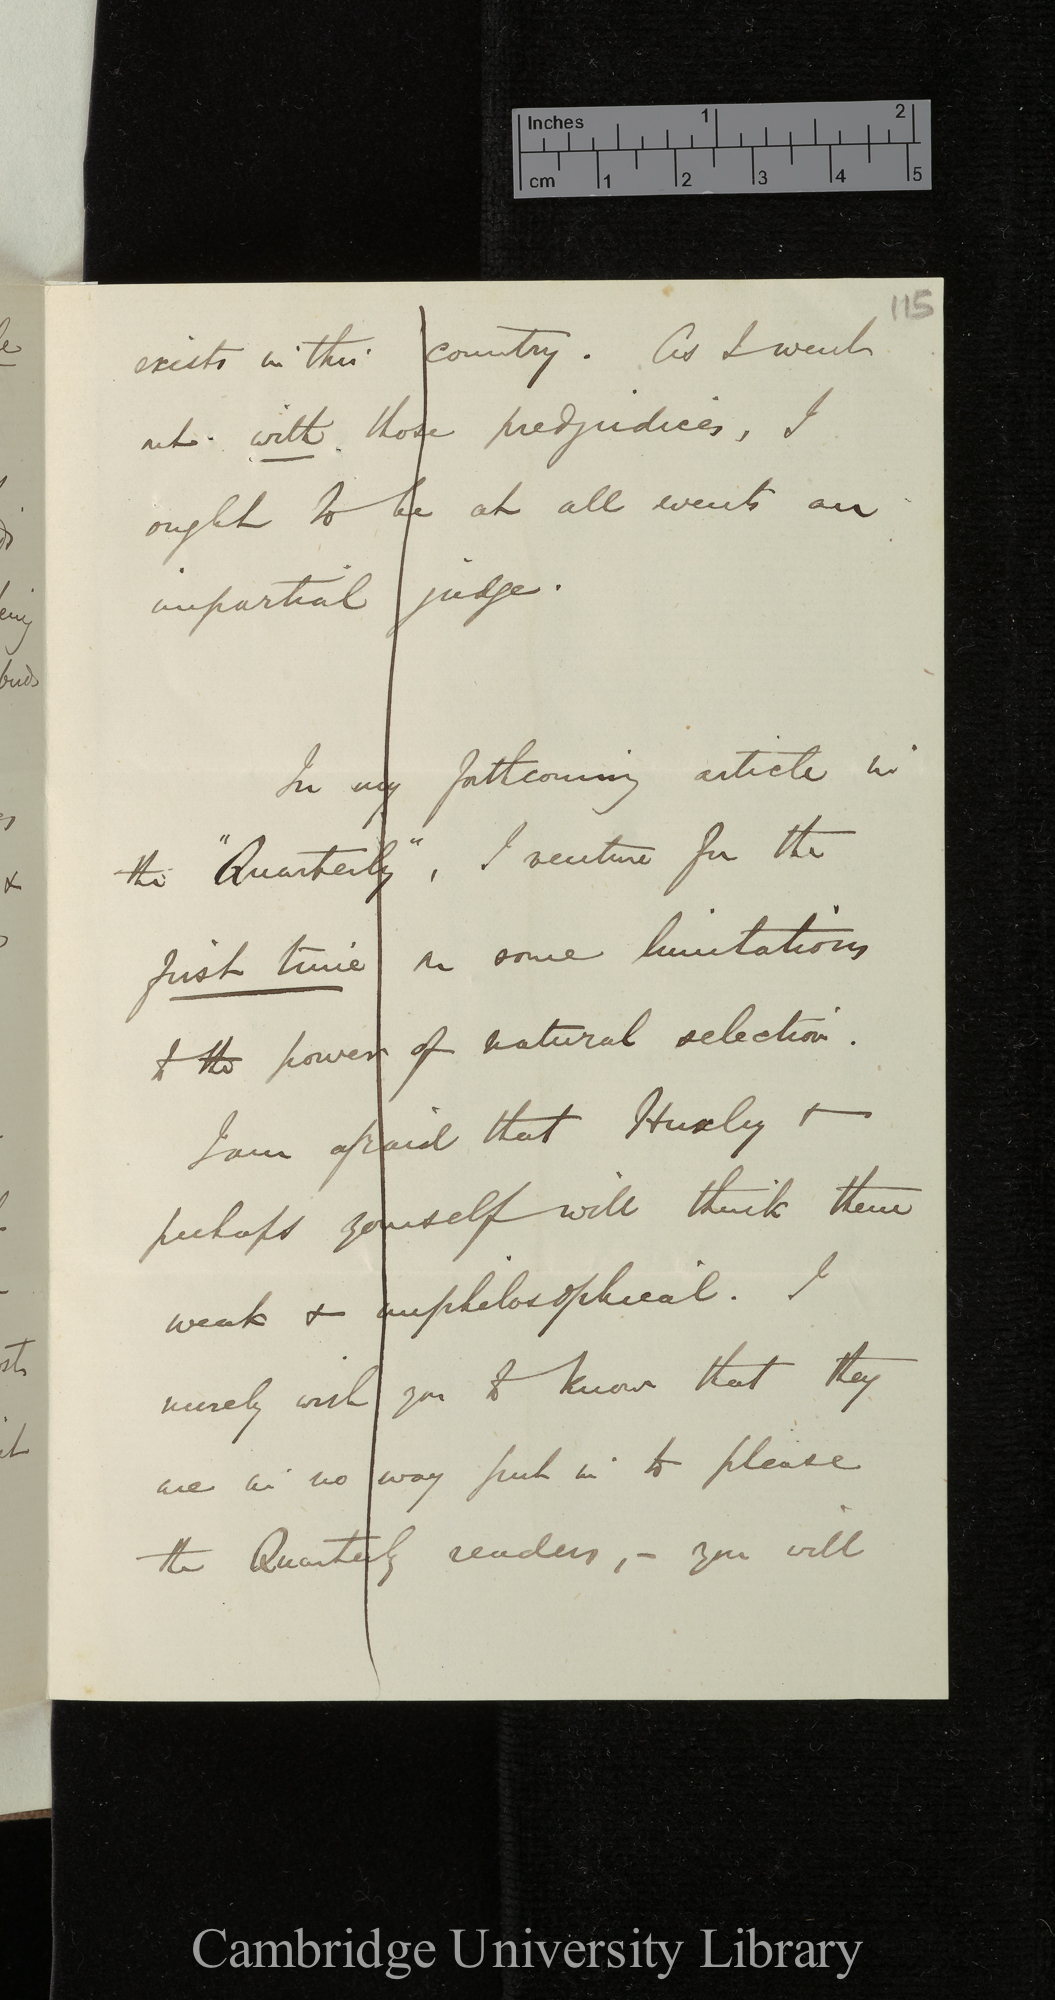 Inches 1 2
cm 1 2 3 4 5
115
exists in this country. As I went
out with those predjudices, I
ought to be at all events an
impartial judge.
In my forthcoming article in
the "Quarterly", I venture for the
first time on some limitations
to the power of natural selection.
I am afraid that Huxley &
perhaps yourself will think them
weak & unphilosophical. I
merely wish you to know that they
are in no way put in to please
the Quarterly readers, – you will
Cambridge University Library